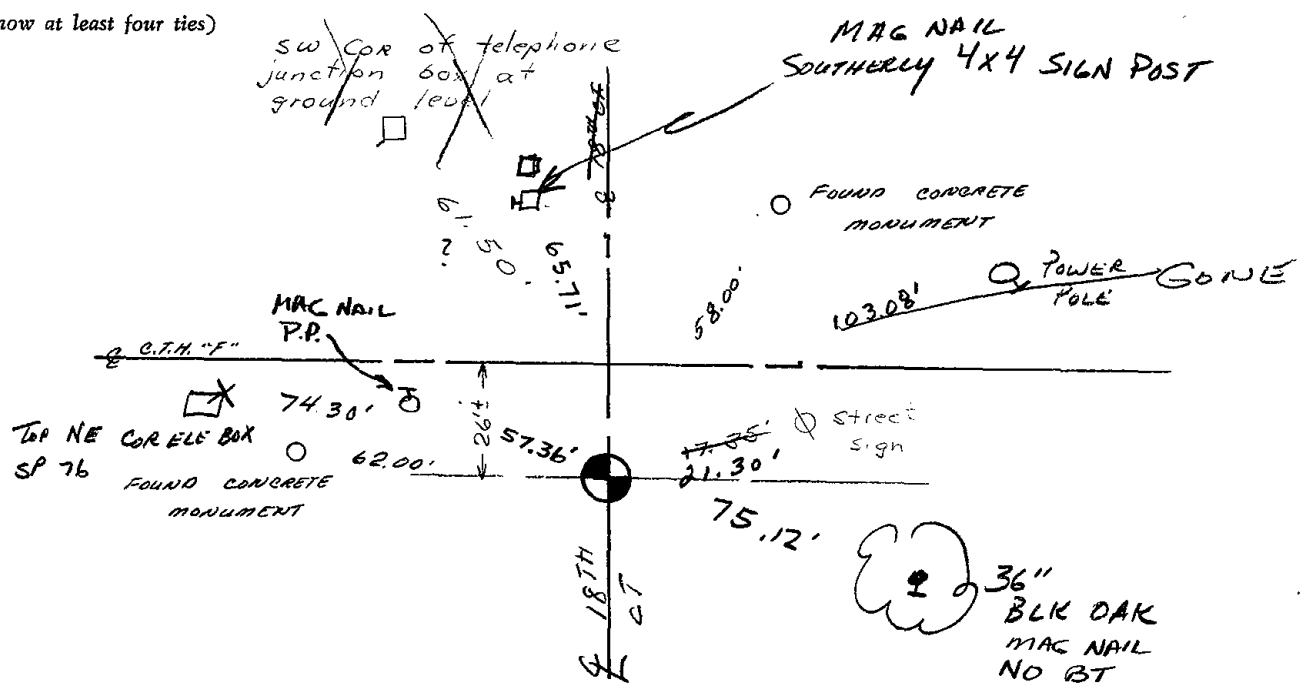 now at least four ties)
SW COR of telephone
junction box at
ground level
MAG NAIL
SOUTHERLY 4X4 SIGN POST
18TH CT
℄
61.50'
?
65.71'
FOUND CONCRETE
MONUMENT
58.00'
103.08'
POWER
POLE
GONE
MAG NAIL
P.P.
℄ C.T.H. "F"
74.30'
26'±
TOP NE COR ELE BOX
SP 76
57.36'
62.00'
FOUND CONCRETE
MONUMENT
17.35'
21.30'
street
sign
75.12'
℄ 18TH
CT
36"
BLK OAK
MAG NAIL
NO BT